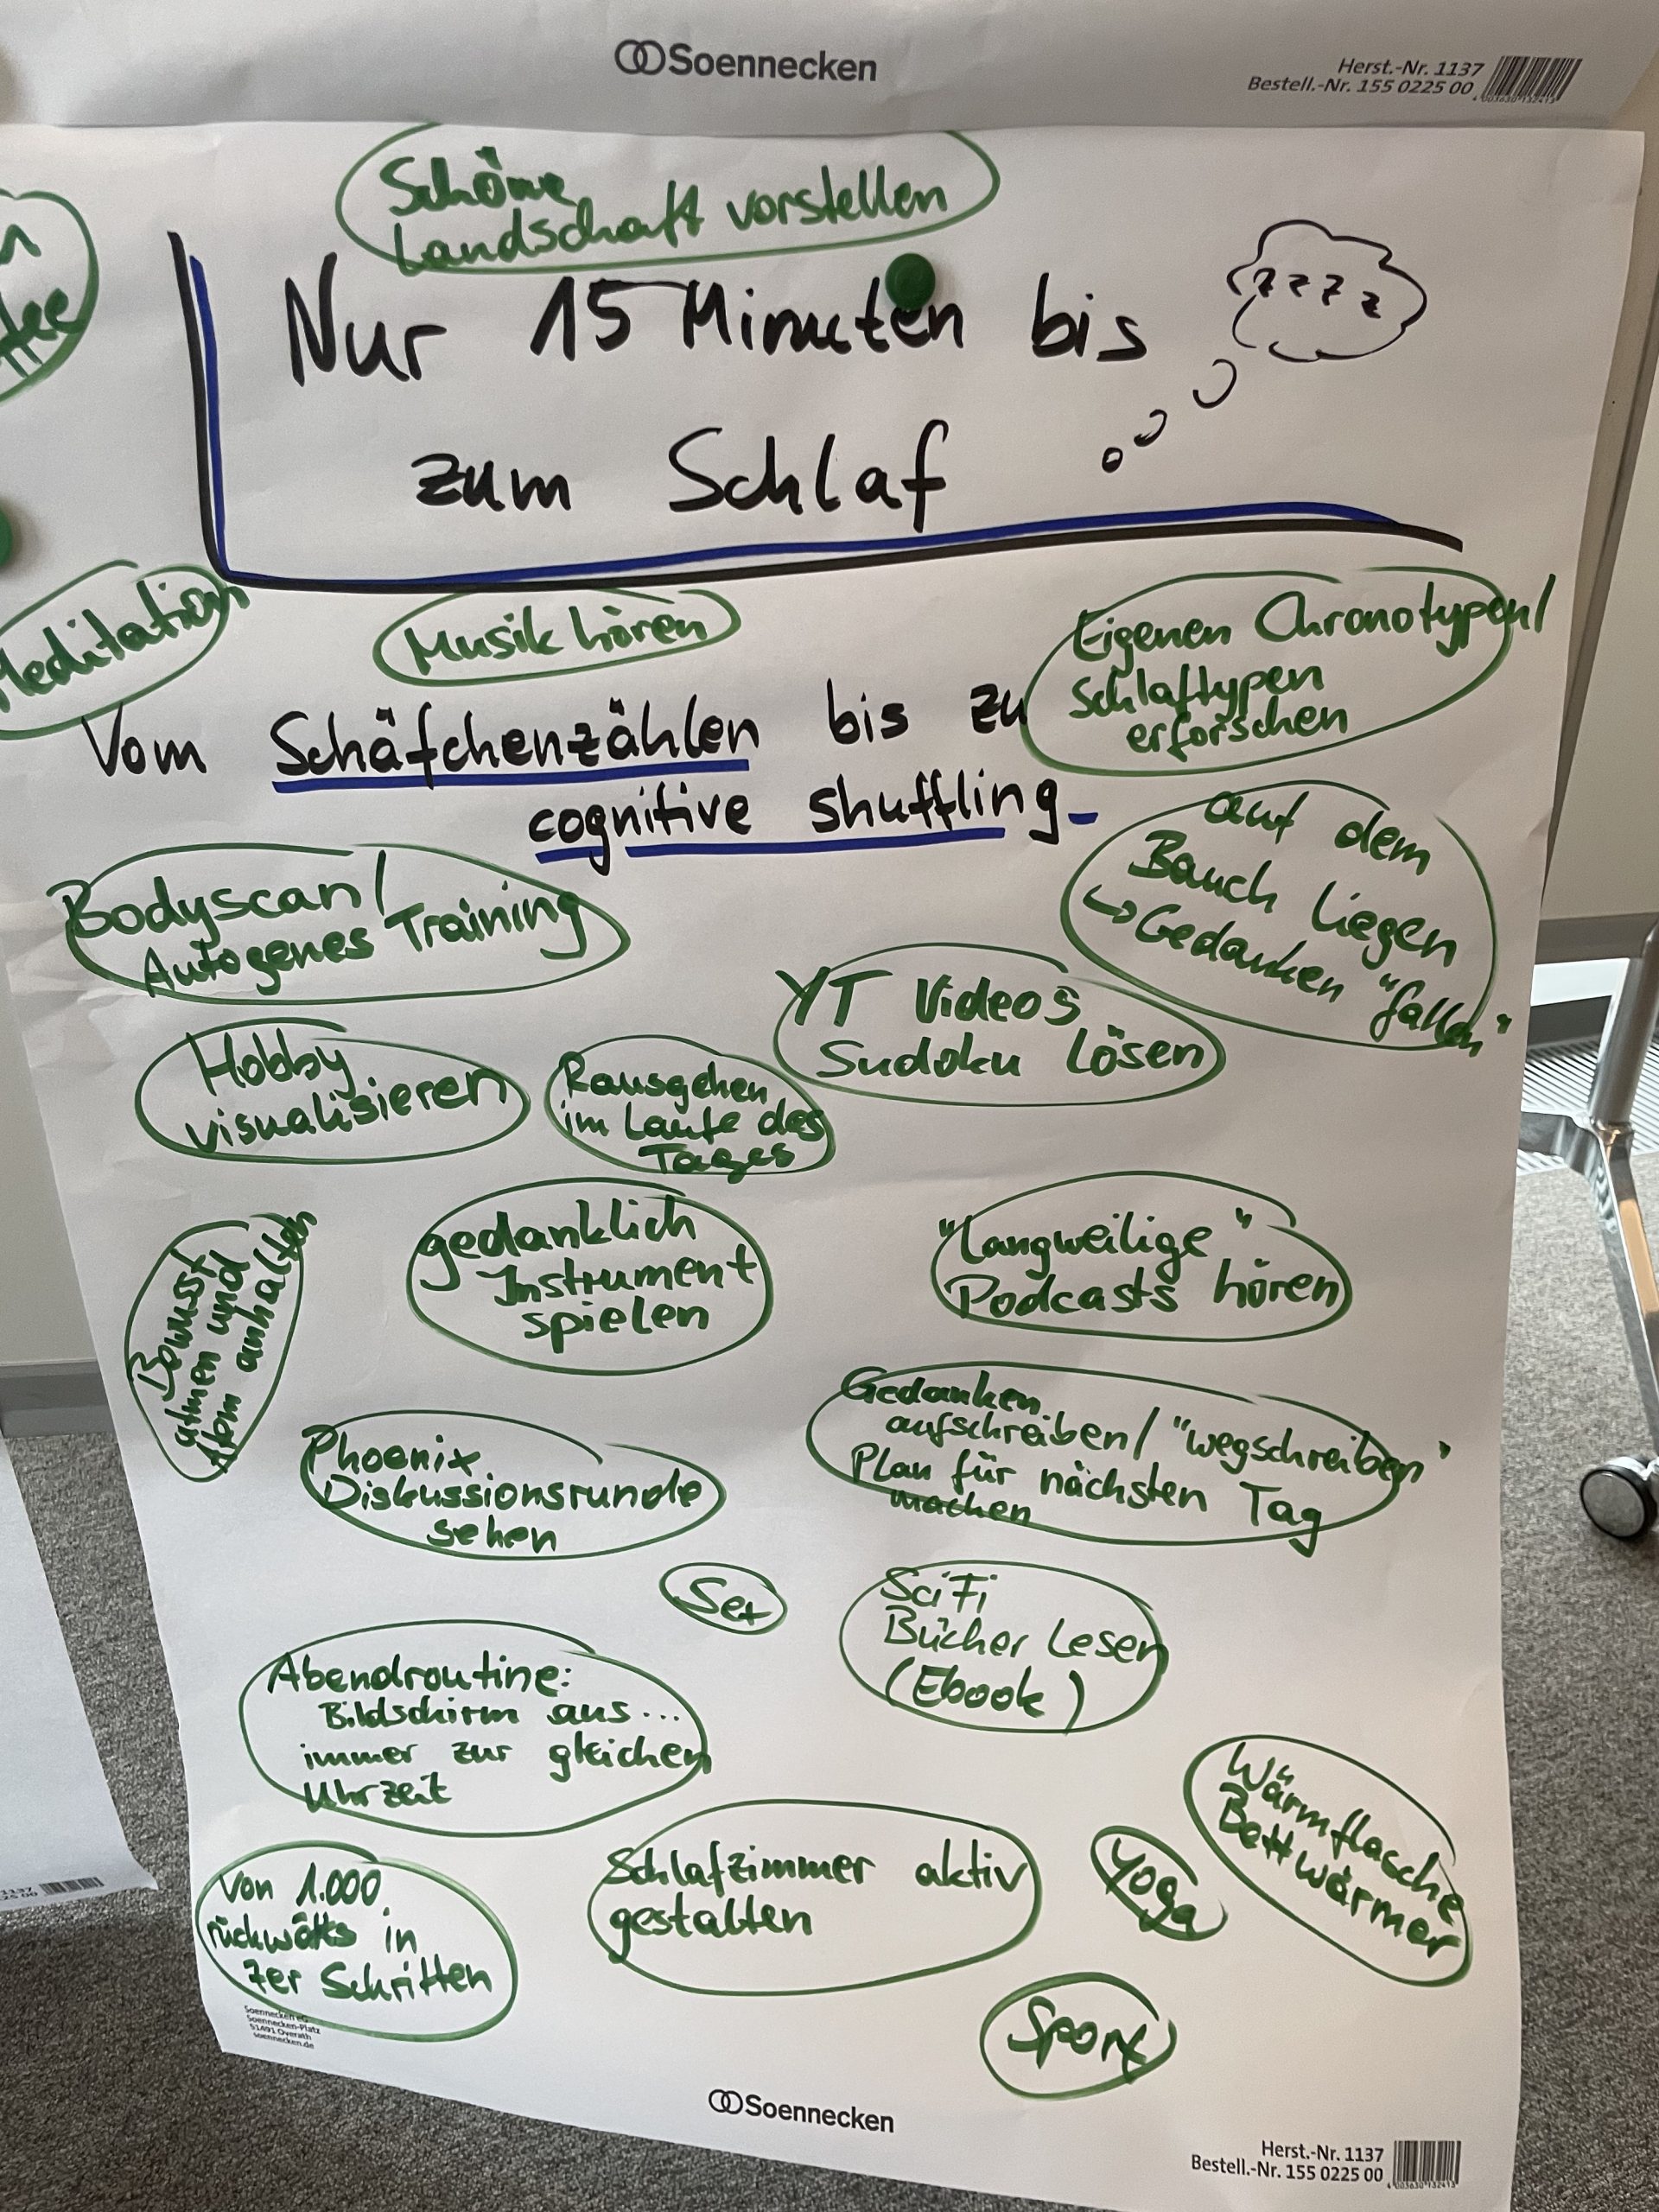 Soennecken
Herst.-Nr. 1137
Bestell.-Nr. 155 0225 00
4 003630 132413
Schöne
Landschaft vorstellen
Nur 15 Minuten bis
zzzz
zum Schlaf
Meditation
Musik hören
Eigenen Chronotypen/
Schlaftypen
erforschen
Vom Schäfchenzählen bis zu
cognitive shuffling
auf dem
Bauch liegen
↳ Gedanken "fallen"
Bodyscan/
Autogenes Training
YT Videos
Sudoku lösen
Hobby
visualisieren
Rausgehen
im Laufe des
Tages
Bewusst
atmen und
Atem anhalten
gedanklich
Instrument
spielen
"langweilige"
Podcasts hören
Gedanken
aufschreiben/"wegschreiben"
Plan für nächsten Tag
machen
Phoenix
Diskussionsrunde
sehen
Sex
SciFi
Bücher lesen
(Ebook)
Abendroutine:
Bildschirm aus...
immer zur gleichen
Uhrzeit
Wärmflasche
Bettwärmer
Von 1.000
rückwärts in
7er Schritten
Schlafzimmer aktiv
gestalten
Yoga
Sport
Soennecken eG
Soennecken-Platz
51491 Overath
soennecken.de
Soennecken
Herst.-Nr. 1137
Bestell.-Nr. 155 0225 00
4 003630 132413